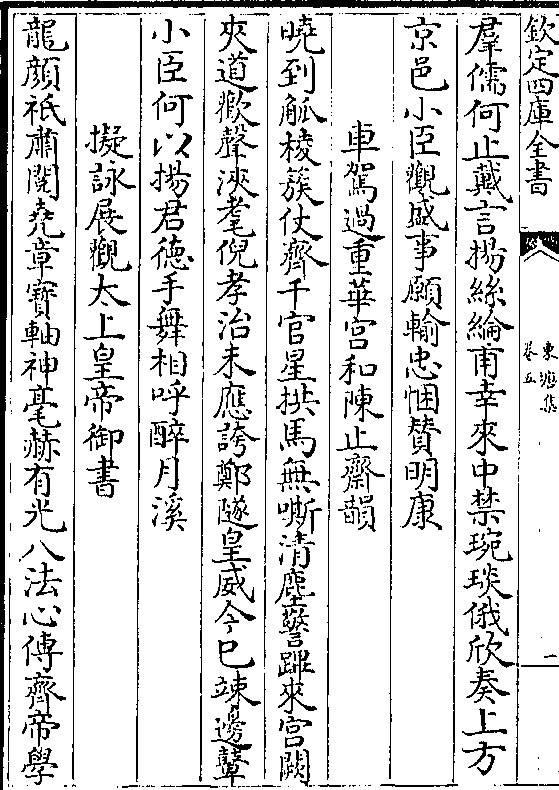 欽定四庫全書
東塘集
卷五
一
羣儒何止戴言揚絲綸甫幸來中禁琬琰俄欣奏上方
京邑小臣觀盛事願輸忠悃贊明康
車駕過重華宫和陳止齋韻
曉到觚棱簇仗齊千官星拱馬無嘶清塵警蹕來宫闕
夾道歡聲浹耄倪孝治未應誇鄭隧皇威今已竦邊鼙
小臣何以揚君德手舞相呼醉月溪
擬詠展觀太上皇帝御書
龍顔祇肅閱堯章寶軸神毫赫有光八法心傳齊帝學